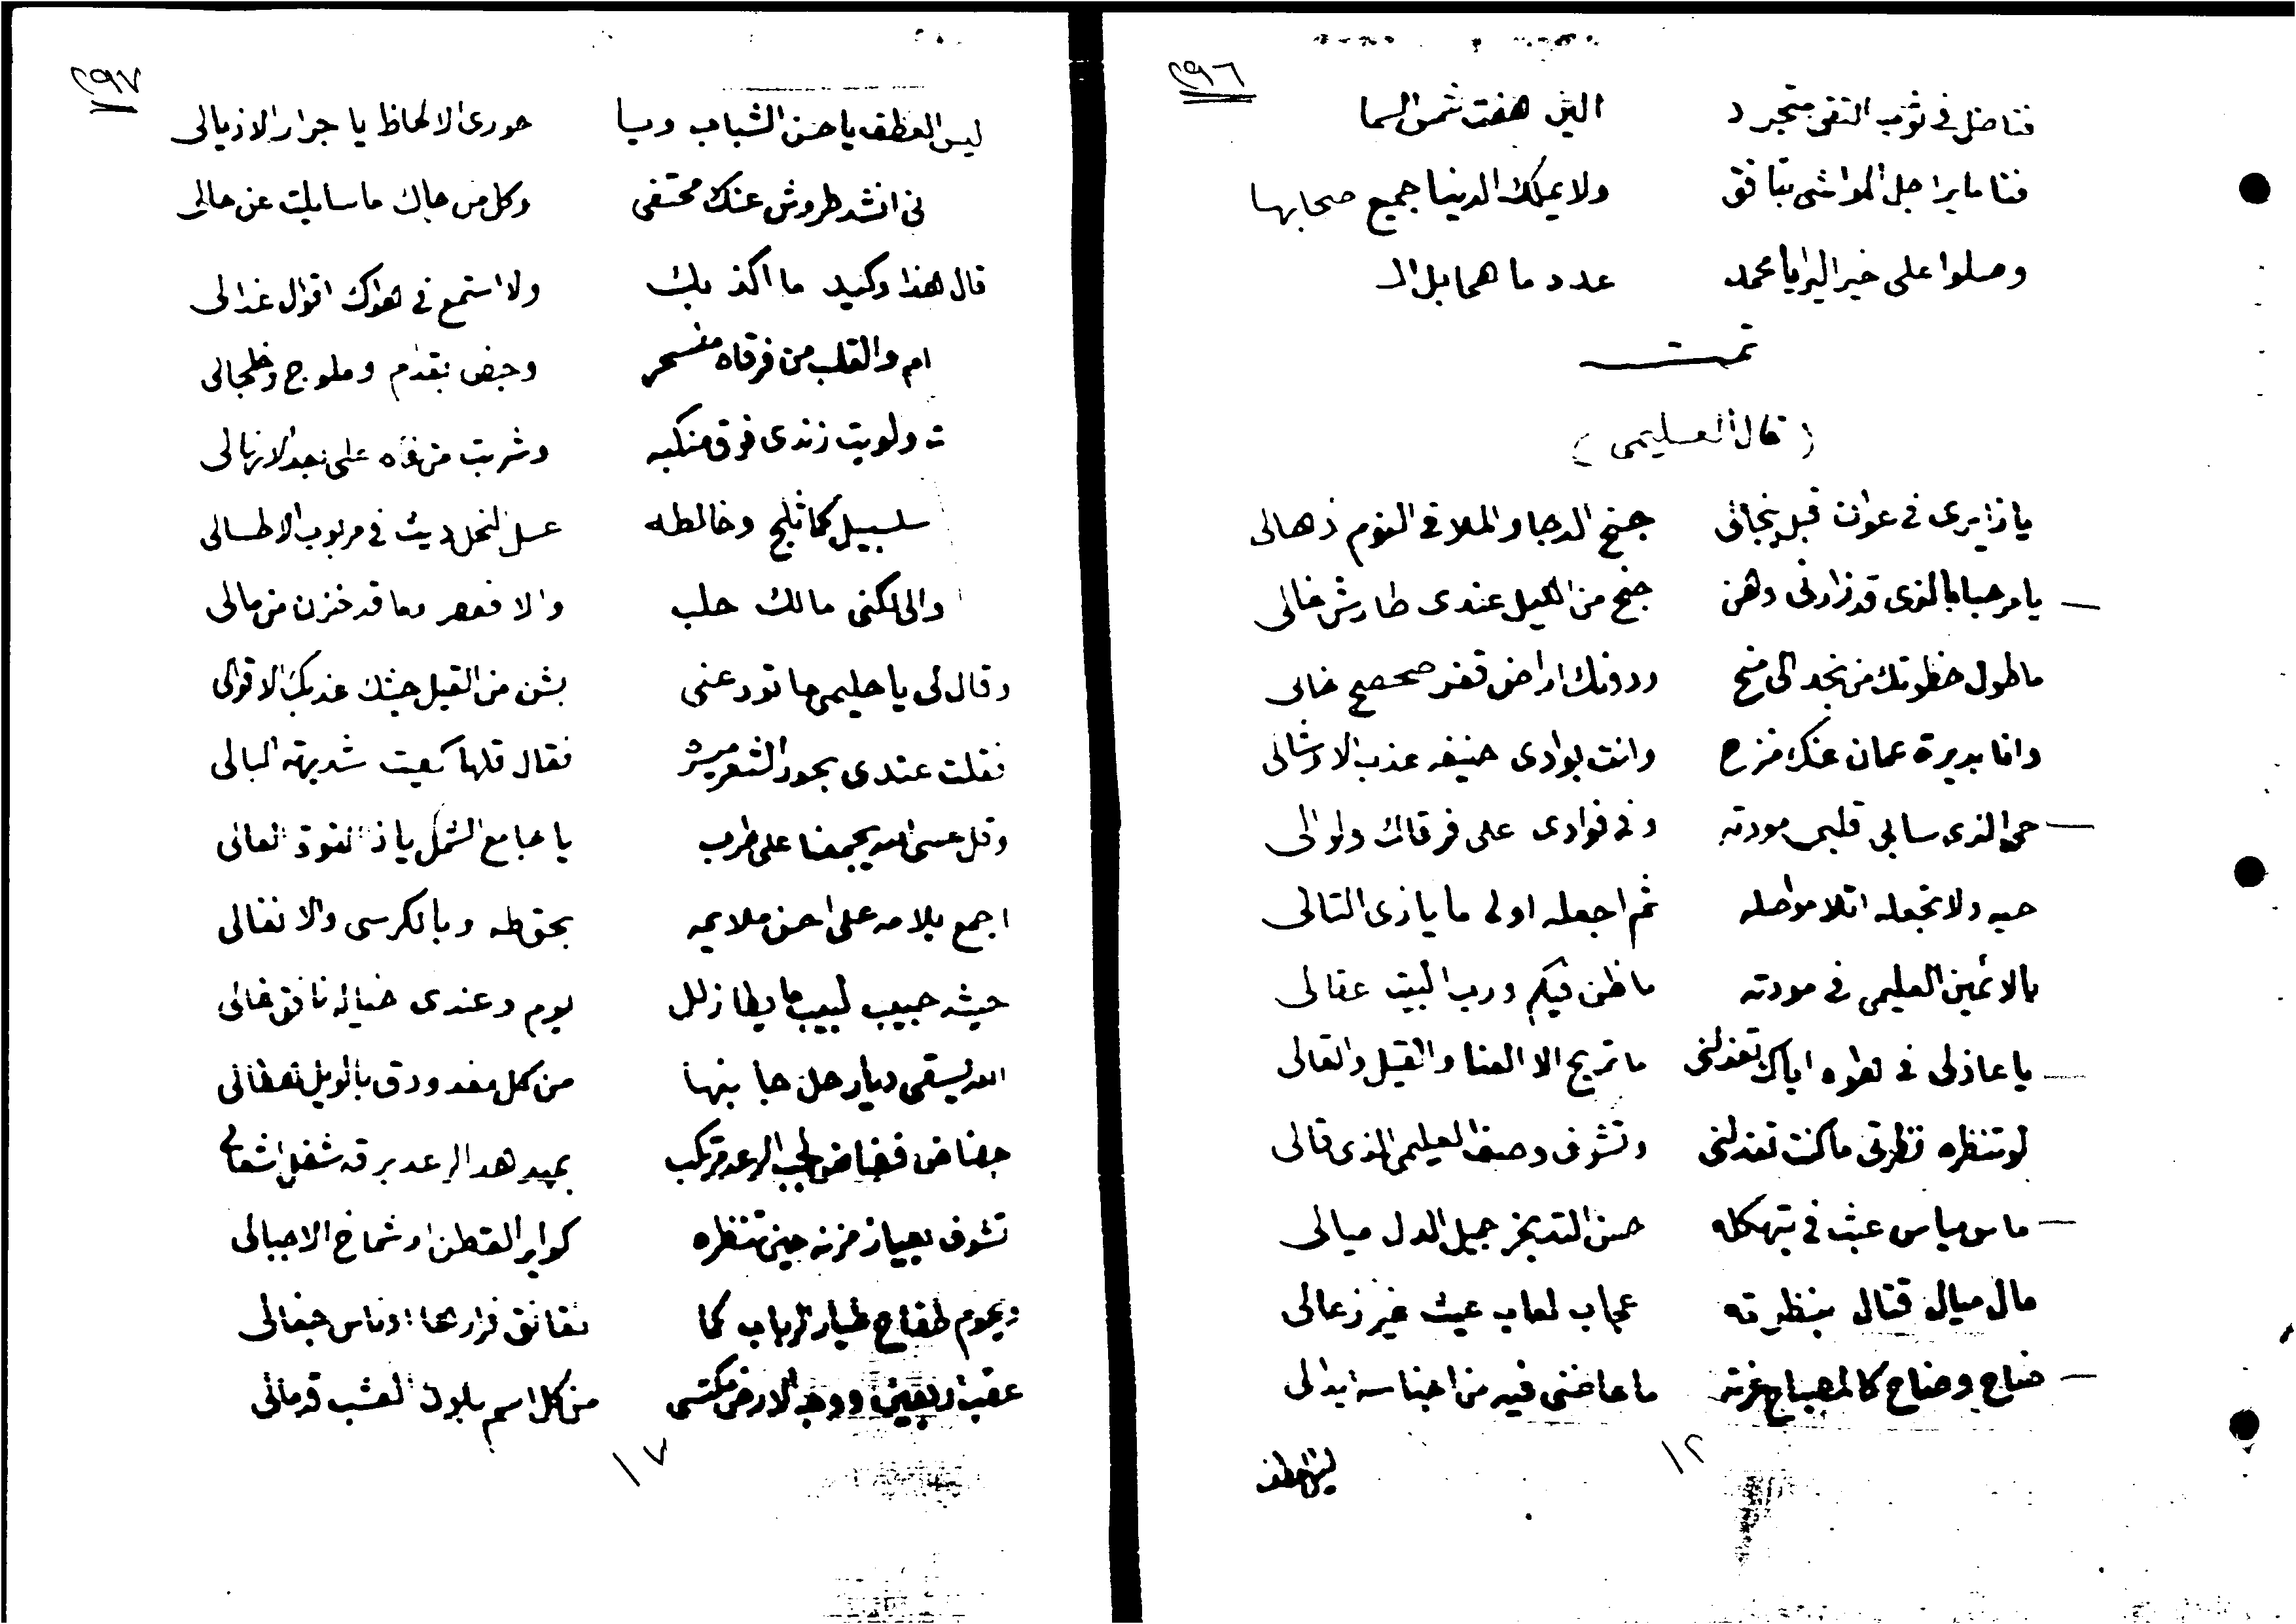 ٢٩٦
فتا ضل في ثوب التقى متجرد الين هفت شمس السما
فتا ما يراجل المواشي بتافق ولا يملك الدنيا جميع صحابها
وصلوا على خير البرايا محمد عدد ما هما بل
تمت
(قال العليمي)
يا زايري في عوان قبل جنح الدجا والملا في النوم ذهالي
يا مرحبا بالذي قد زارني وهن جنح من الليل عندي طارش غالي
ما طول خطوتك من نجد الى منح ودونك اراض قفر صحصح خالي
وانا بديرة عمان عنك منزح وانت بوادي حنيفه عذب الارشالي
حي الذي سابي قلبي مودته وفي فوادي على فرقاك ولوالي
حبه ولا تجعله اتلا مواصله ثم اجعله اولى ما يا ذي التالي
يا لائمين العليمي في مودته ما ظن فيكم ورب البيت عقالي
يا عاذلي في هواه اياك تعذلني ما تربح الا العنا والقيل والقالي
لو تنظره نظرتي ما كنت تعذلني وتشوف وصف العليمي الذي قالي
ماس مياس عبث في تهكله حسن التبختر جميل الدل ميالي
مال ميال قتال بنظرته عجاب لعاب عيث غير زعالي
صناج وضاح كالمصباح غرته ما عاضني فيه من اجناسه ابدالي
١٢
لين العطف
٢٩٧
لين العطف يا حسن الشباب ويا حوري الالحاظ يا جرار الاذيالي
ني انشد طروش عنك محتفي وكل من جاك ما سايلت عن حالي
قال هذا وكيد ما اكذبك ولا استمع في هواك اقوال عذالي
ام والقلب من فرقاه منسحر وحبض بقدم وملوج وخلجالي
ت ولويت زندي فوق منكبه وشربت من فاه على بعد الانهالي
سلسبيل كما ثلج وخالطه عسل النحل ديث في مربوب الاطسالي
والى لكنى مالك حلب والا فمصر وما قد خزن من مالي
وقال لي يا حليمي ما تودعني بشن من القيل حيثك عندك الاقوالي
فقلت عندي بحور الشعر فقال قلها كيت شديته البالي
وقل عسى الله يجمعنا على طرب يا جامع الشمل يا ذا القوة العالي
اجمع بلامه على احسن ملايمه بحق طه وبالكرسي والانفالي
حيثه حبيب لبيب ما يطا زلل يوم وعندي خياله نافق غالي
الله يسقي ديار حل جا بنها من كل مغدودق بالويل هطالي
جضاض فضاض لجب الرعد مرتكب بهيد هد الرعد برقه شغل اشعالي
تشوف بعياز مزنه حين تنظره كوابر القطن او شماخ الاجبالي
ويحوم طفاح طيار الرباب كما نقانق او ناس جفالي
عقب اربعين ووجه الارض مكتسي من كل اسم بلون العشب قد مالي
١٧